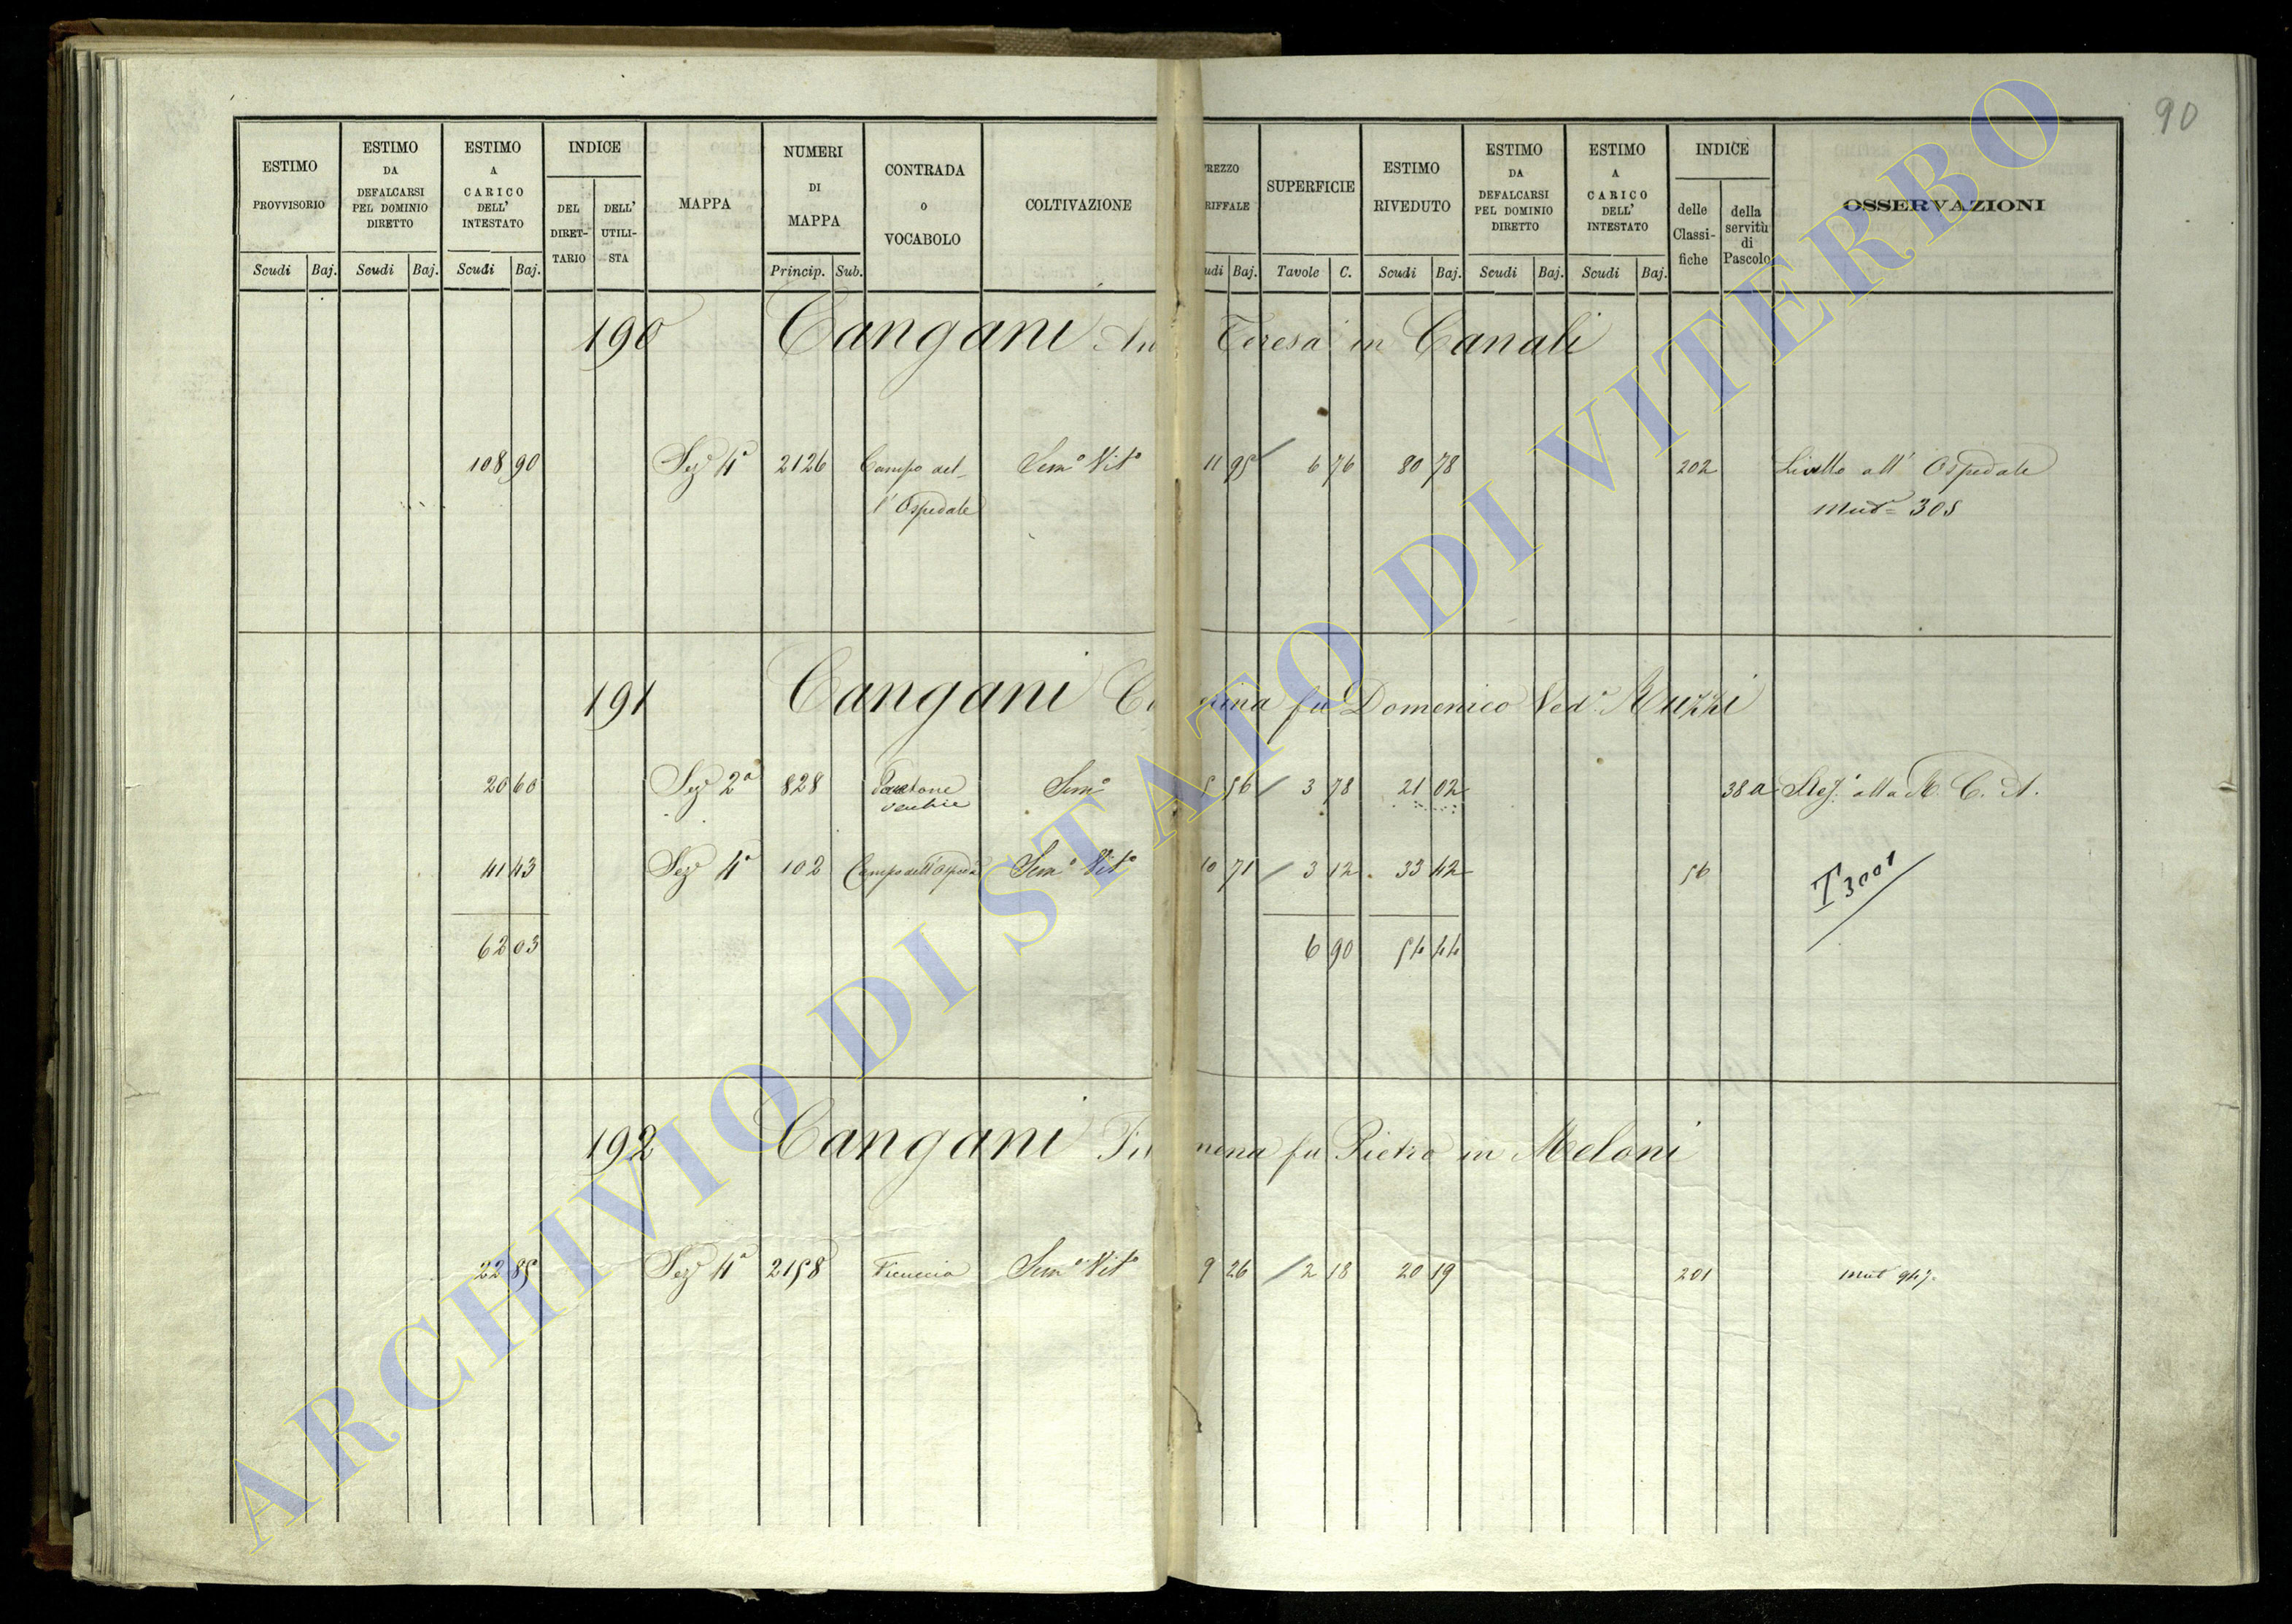 90
ESTIMO PROVVISORIO Scudi Baj.
ESTIMO DA DEFALCARSI PEL DOMINIO DIRETTO Scudi Baj.
ESTIMO A CARICO DELL' INTESTATO Scudi Baj.
INDICE DEL DIRET-TARIO DELL' UTILI-STA
MAPPA
NUMERI DI MAPPA Princip. Sub.
CONTRADA o VOCABOLO
COLTIVAZIONE
REZZO RIFFALE udi Baj.
SUPERFICIE Tavole C.
ESTIMO RIVEDUTO Scudi Baj.
ESTIMO DA DEFALCARSI PEL DOMINIO DIRETTO Scudi Baj.
ESTIMO A CARICO DELL' INTESTATO Scudi Baj.
INDICE delle Classi-fiche della servitù di Pascolo
OSSERVAZIONI
190 Cangani An Teresa in Canali
108 90 Sez. 4a 2126 Campo del- Semo Vito 11 95 / 6 76 80 78 202 Livello all' Ospedale
l' Ospedale Mut= 305
191 Cangani C nina fu Domenico Ved.a Nuzzi
20 60 Sez. 2a 828 Semo 5 56 / 3 78 21 02 38 a alla R. C. A.
Vecchie
41 43 Sez. 4a 102 Campo dell'Osped. Semo Vito 10 71 / 3 12 33 42 56 T 3001
62 03 6 90 54 44
192 Cangani Fi mena fu Pietro in Meloni
22 85 Sez. 4a 2158 Ficuccia Semo Vito 9 26 / 2 18 20 19 201 Mut 947.
ARCHIVIO DI STATO DI VITERBO